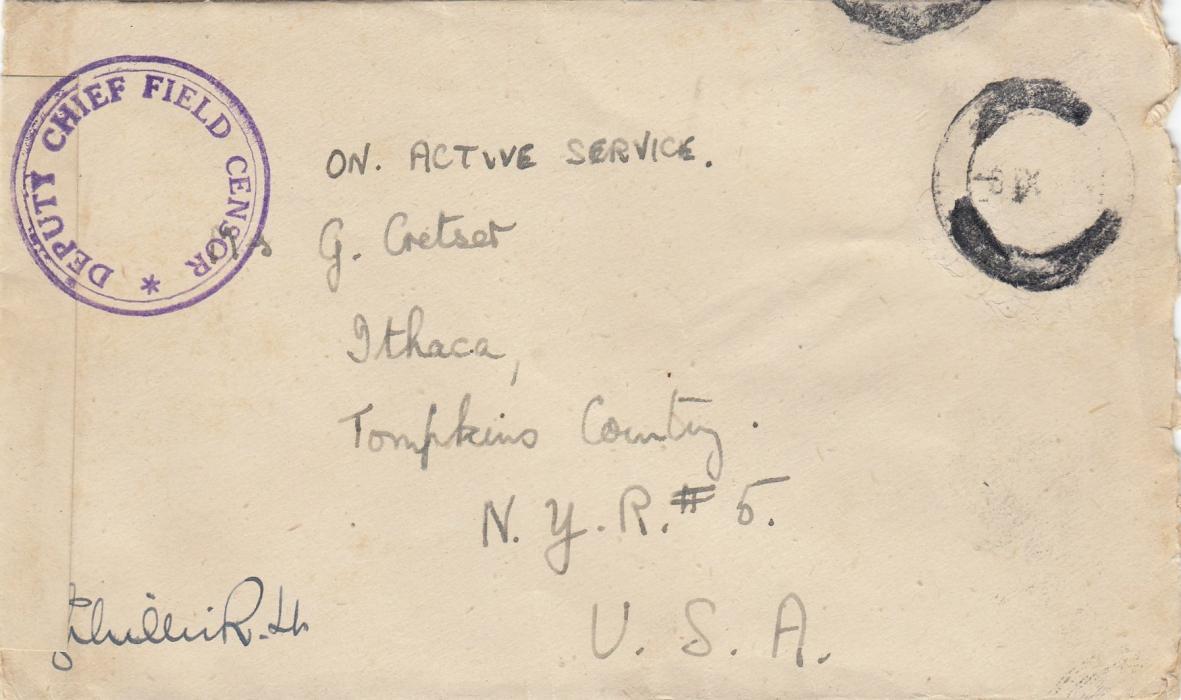 DEPUTY CHIEF FIELD CENSOR *
ON. ACTIVE SERVICE.
G. Cretser
Ithaca,
Tompkins County.
N. Y. R. # 5.
U. S. A.